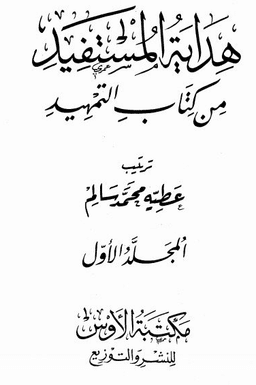 هداية المستفيد
من كتاب التمهيد
ترتيب
عطيه محمد سالم
المجلد الأول
مكتبة الأوس
للنشر والتوزيع